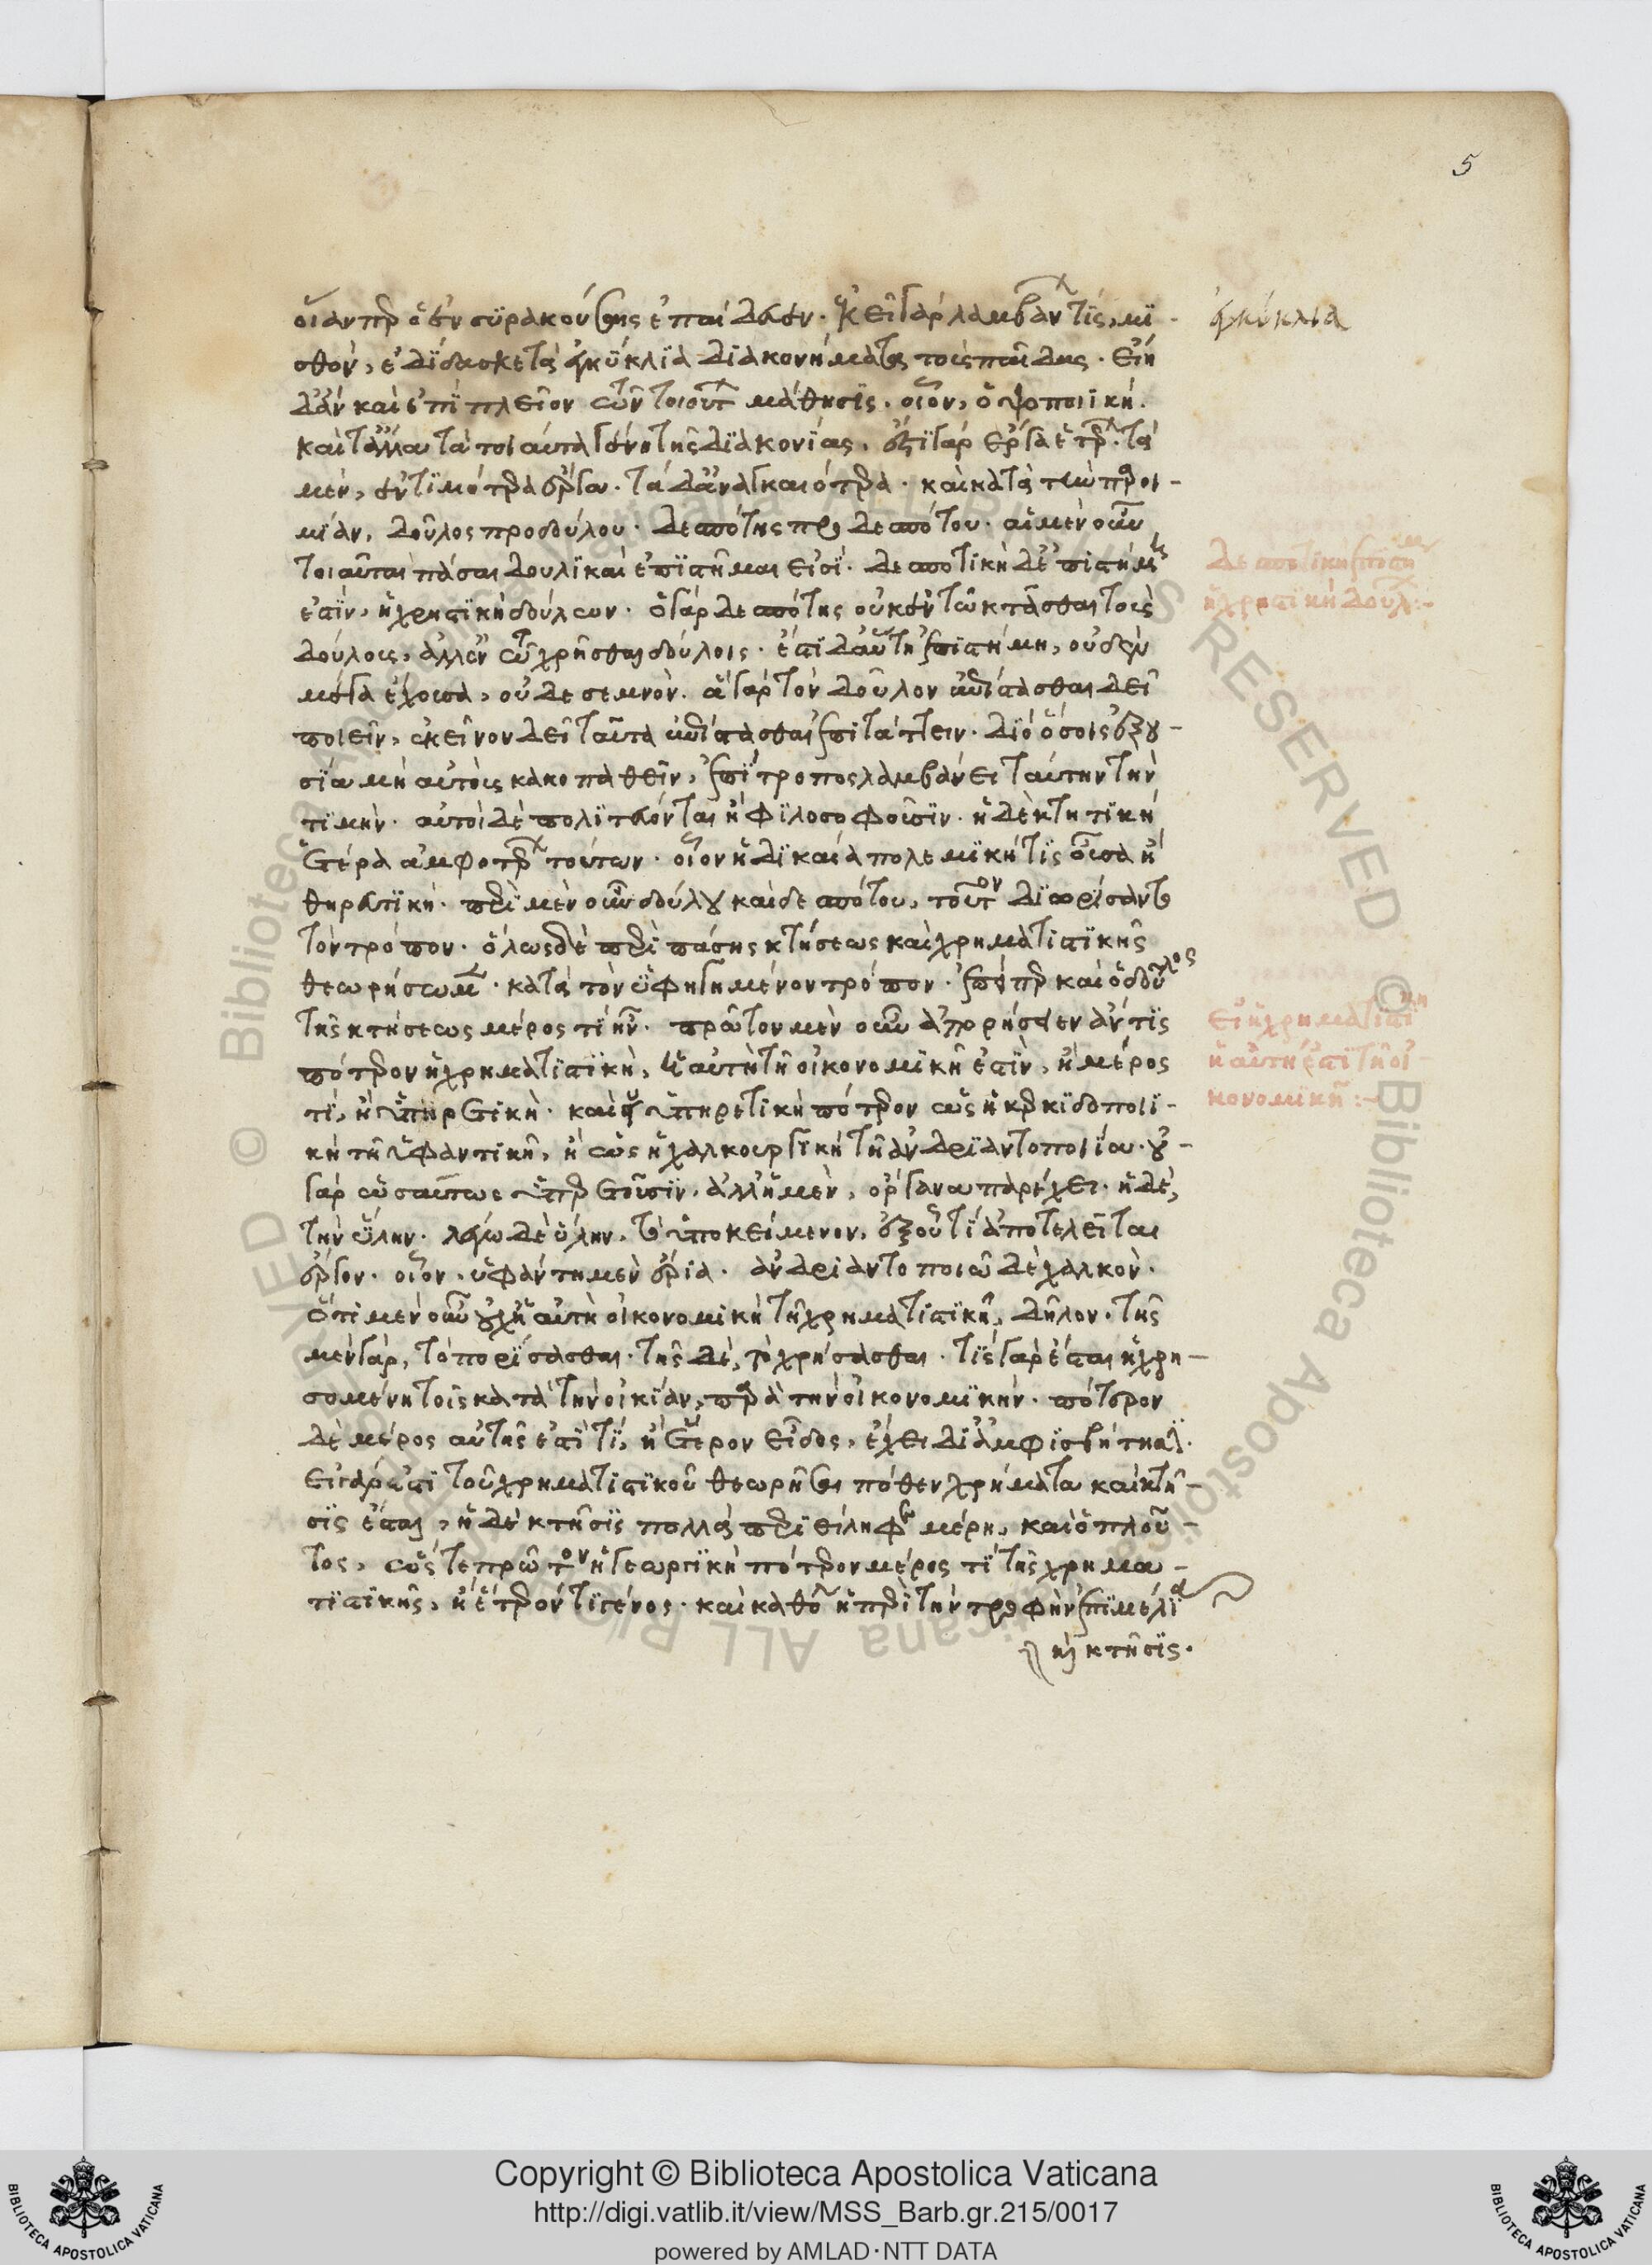 5
οἵαν περ ὁ ἐν συρακούσαις ἐπαίδευεν. ἐκεῖ γὰρ λαμβάνων τίς, μι-
σθὸν, ἐδίδασκε τὰ ἐγκύκλια διακονήματα τοὺς παῖδας. εἴη
δ' ἂν καὶ ἐπὶ πλεῖον τῶν τοιούτων μάθησις. οἷον, ὀψοποιική.
καὶ τἆλλα τὰ τοιαῦτα γένη τῆς διακονίας. ἔστι γὰρ ἕργα ἑτέρων. τὰ
μὲν, ἐντιμότερα ἔργα. τὰ δ' ἀναγκαιότερα. καὶ κατὰ τὴν παροι-
μίαν, δοῦλος πρὸ δούλου. δεσπότης πρὸ δεσπότου. αἱ μὲν οὖν
τοιαῦται πᾶσαι δουλικαὶ ἐπιστῆμαι εἰσί. δεσποτικὴ δ' ἐπιστήμη
ἐστὶν, ἡ χρηστικὴ δούλων. ὁ γὰρ δεσπότης οὐκ ἐν τῷ κτᾶσθαι τοὺς
δούλους, ἀλλ' ἐν τῷ χρῆσθαι δούλοις. ἔστι δ' αὕτη ἐπιστήμη, οὐδὲν
μέγα ἔχουσα, οὐδὲ σεμνόν. ἃ γὰρ τὸν δοῦλον ἐπίστασθαι δεῖ
ποιεῖν, ἐκεῖνον δεῖ ταῦτα ἐπίστασθαι ἐπιτάττειν. διὸ ὅσοις ἐξου-
σία μὴ αὐτοὺς κακοπαθεῖν, ἐπίτροπος λαμβάνει ταύτην τὴν
τιμήν. αὐτοὶ δὲ πολιτεύονται ἢ φιλοσοφοῦσιν. ἡ δὲ κτητικὴ
ἑτέρα ἀμφοτέρων τούτων. οἷον ἡ δικαία πολεμική τις οὖσα ἢ
θηρευτική. περὶ μὲν οὖν δούλου καὶ δεσπότου, τοῦτον διωρίσθω
τὸν τρόπον. ὅλως δὲ περὶ πάσης κτήσεως καὶ χρηματιστικῆς
θεωρήσωμεν. κατὰ τὸν ὑφηγημένον τρόπον. ἐπείπερ καὶ ὁ δοῦλος
τῆς κτήσεως μέρος τὶ ἦν. πρῶτον μὲν οὖν ἀπορήσειεν ἄν τις
πότερον ἡ χρηματιστικὴ, ἡ αὐτὴ τῇ οἰκονομικῇ ἐστὶν, ἢ μέρος
τὶ, ἢ ὑπηρετική. καὶ εἰ ὑπηρετικὴ πότερον ὡς ἡ κερκιδοποιι-
κὴ τῇ ὑφαντικῇ, ἢ ὡς ἡ χαλκουργικὴ τῇ ἀνδριαντοποιία. οὐ
γὰρ ὡσαύτως ὑπηρετοῦσιν. ἀλλ' ἡ μὲν, ὄργανα παρέχει. ἡ δὲ,
τὴν ὕλην. λέγω δὲ ὕλην, τὸ ὑποκείμενον, ἐξ οὗ τὶ ἀποτελεῖται
ἔργον. οἷον. ὑφάντη μὲν ἔρια. ἀνδριαντοποιῷ δὲ χαλκόν.
ὅτι μὲν οὖν οὐχ ἡ αὐτὴ οἰκονομικὴ τῇ χρηματιστικῇ, δῆλον. τῆς
μὲν γὰρ, τὸ πορίσασθαι. τῆς δὲ, τὸ χρήσασθαι. τίς γὰρ ἔσται ἡ χρη-
σομένη τοῖς κατὰ τὴν οἰκίαν, παρὰ τὴν οἰκονομικήν. πότερον
δὲ μέρος αὐτῆς ἐστί τι, ἢ ἕτερον εἶδος, ἔχει διαμφισβήτησιν.
εἰ γάρ ἐστι τοῦ χρηματιστικοῦ θεωρῆσαι πόθεν χρήματα καὶ κτῆ-
σις ἔσται, ἡ δὲ κτῆσις πολλὰ περιείληφε μέρη, καὶ ὁ πλοῦ-
τος, ὥστε πρῶτον ἡ γεωργικὴ πότερον μέρος τὶ τῆς χρημα-
τιστικῆς, ἢ ἕτερόν τι γένος. καὶ καθόλου ἡ περὶ τὴν τροφὴν ἐπιμέλεια
καὶ κτῆσις.
ἐγκύκλια
δεσποτικὴ ἐπιστήμη
ἡ χρηστικὴ δούλων:-
εἰ ἡ χρηματιστικὴ
ἡ αὐτή ἐστι τῇ οἰ-
κονομικῇ:-
Copyright © Biblioteca Apostolica Vaticana
http://digi.vatlib.it/view/MSS_Barb.gr.215/0017
powered by AMLAD·NTT DATA
BIBLIOTECA APOSTOLICA VATICANA
BIBLIOTECA APOSTOLICA VATICANA